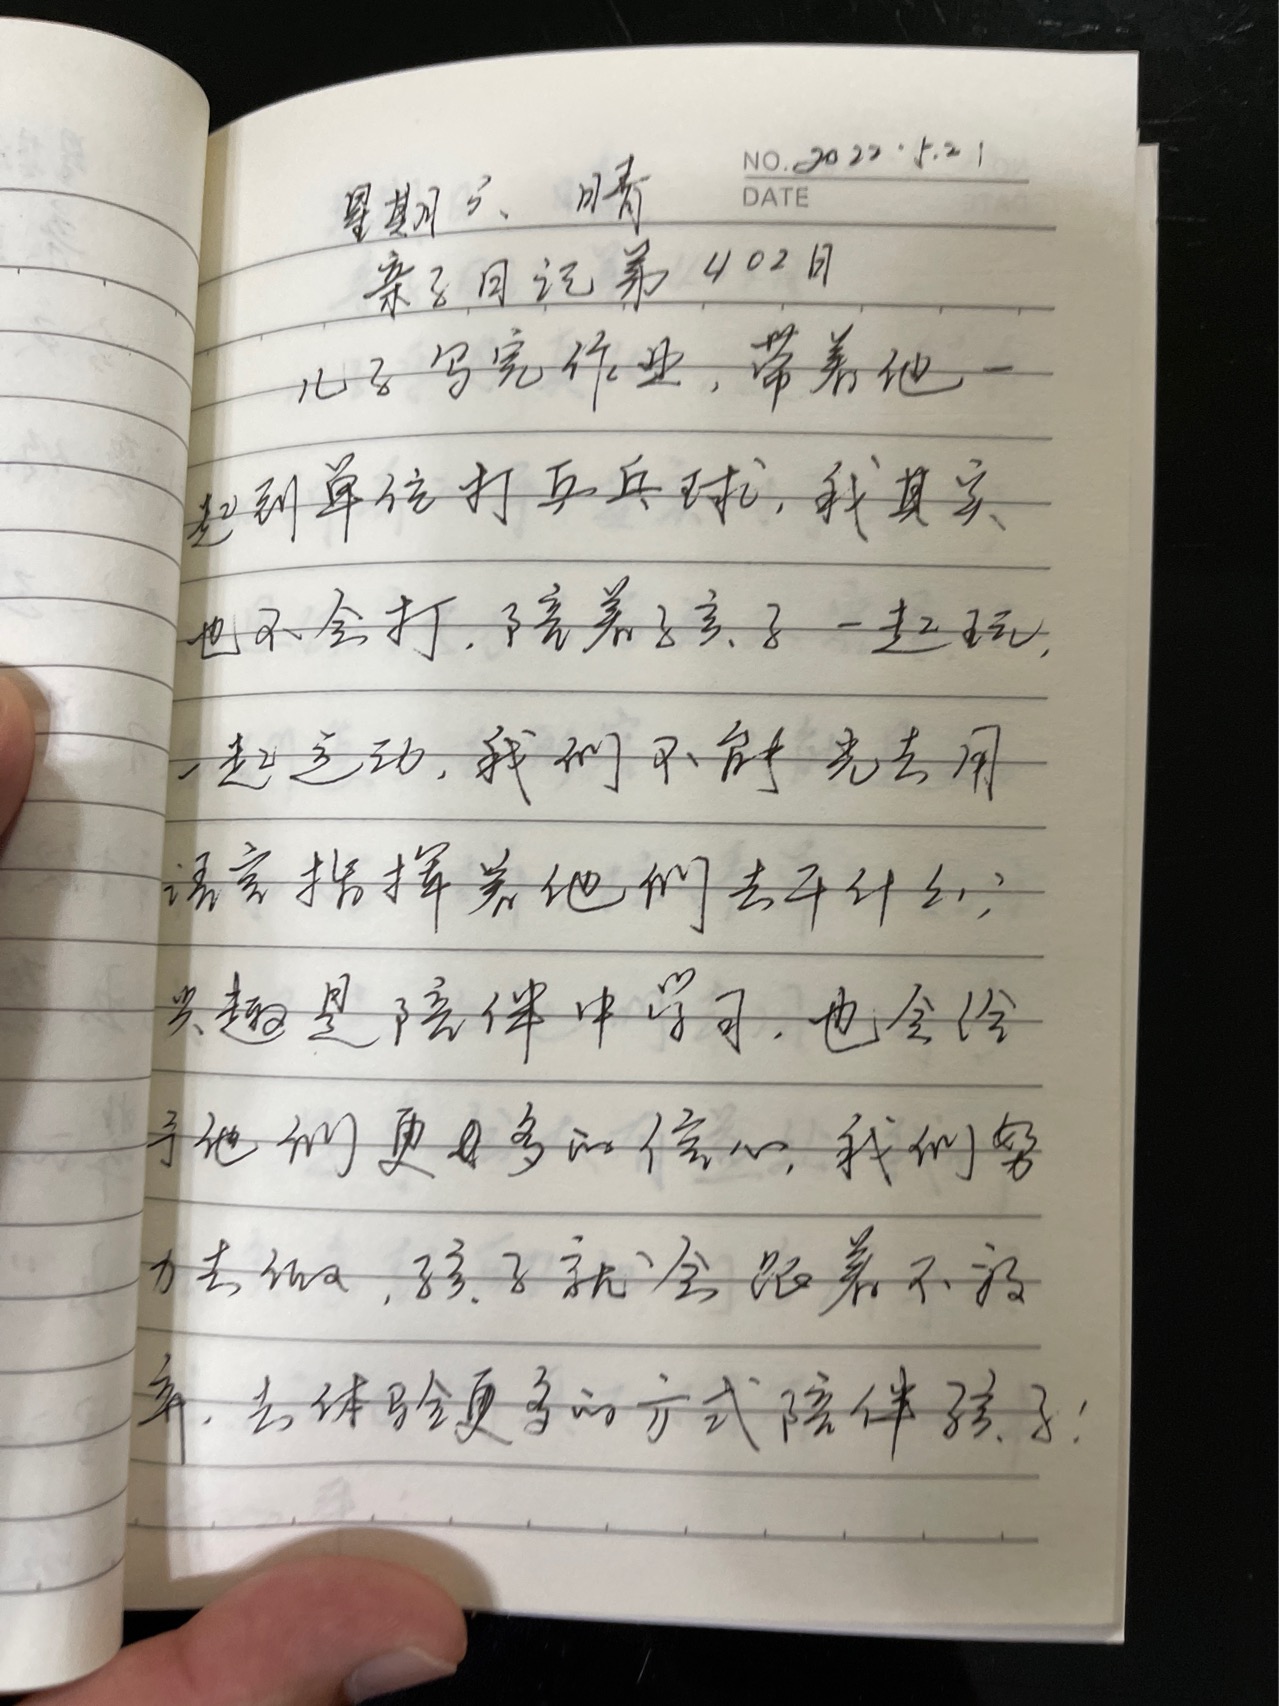 NO. 2022.5.21
DATE
星期六、 晴
亲子日记第402日
儿子写完作业，带着他一
起到单位打乒乓球，我其实
也不会打，陪着孩子一起玩，
一起运动，我们不能光去用
语言指挥着他们去干什么；
兴趣是陪伴中学习，也会给
予他们更多的信心，我们努
力去做，孩子就会跟着不放
弃，去体验更多的方式陪伴孩子！